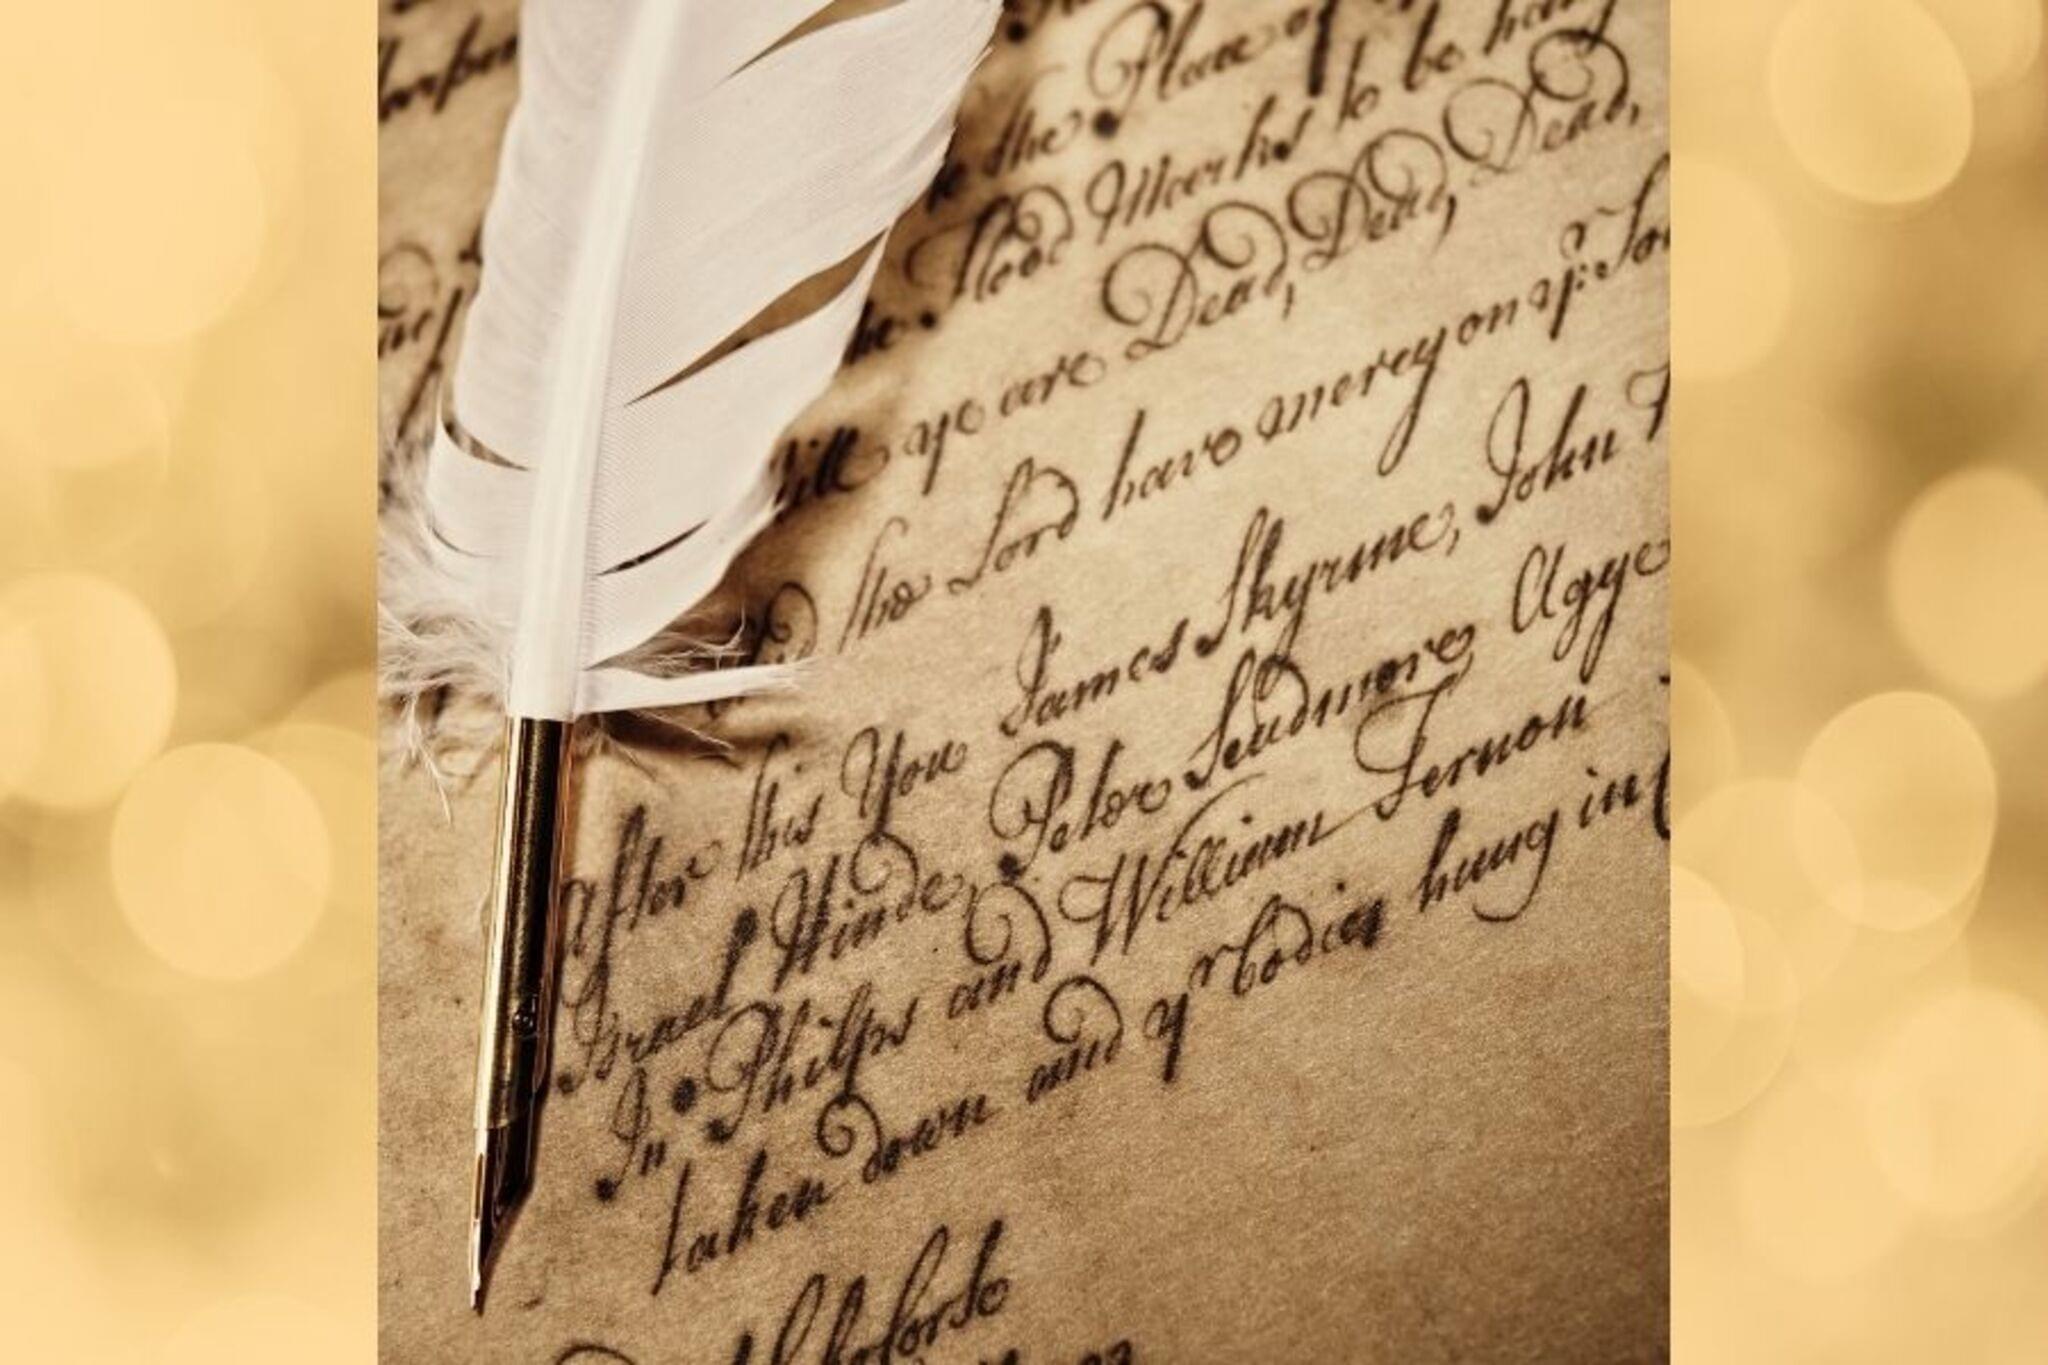 the Place of
Flood Marks to be hang
ye are Dead, Dead, Dead,
the Lord have mercy on yr. Sou
After this You James Skyrme, John
Israel Hinde, Peter Scudmore Agge
In Philps and William Fernon
taken down and yr bodies hung in